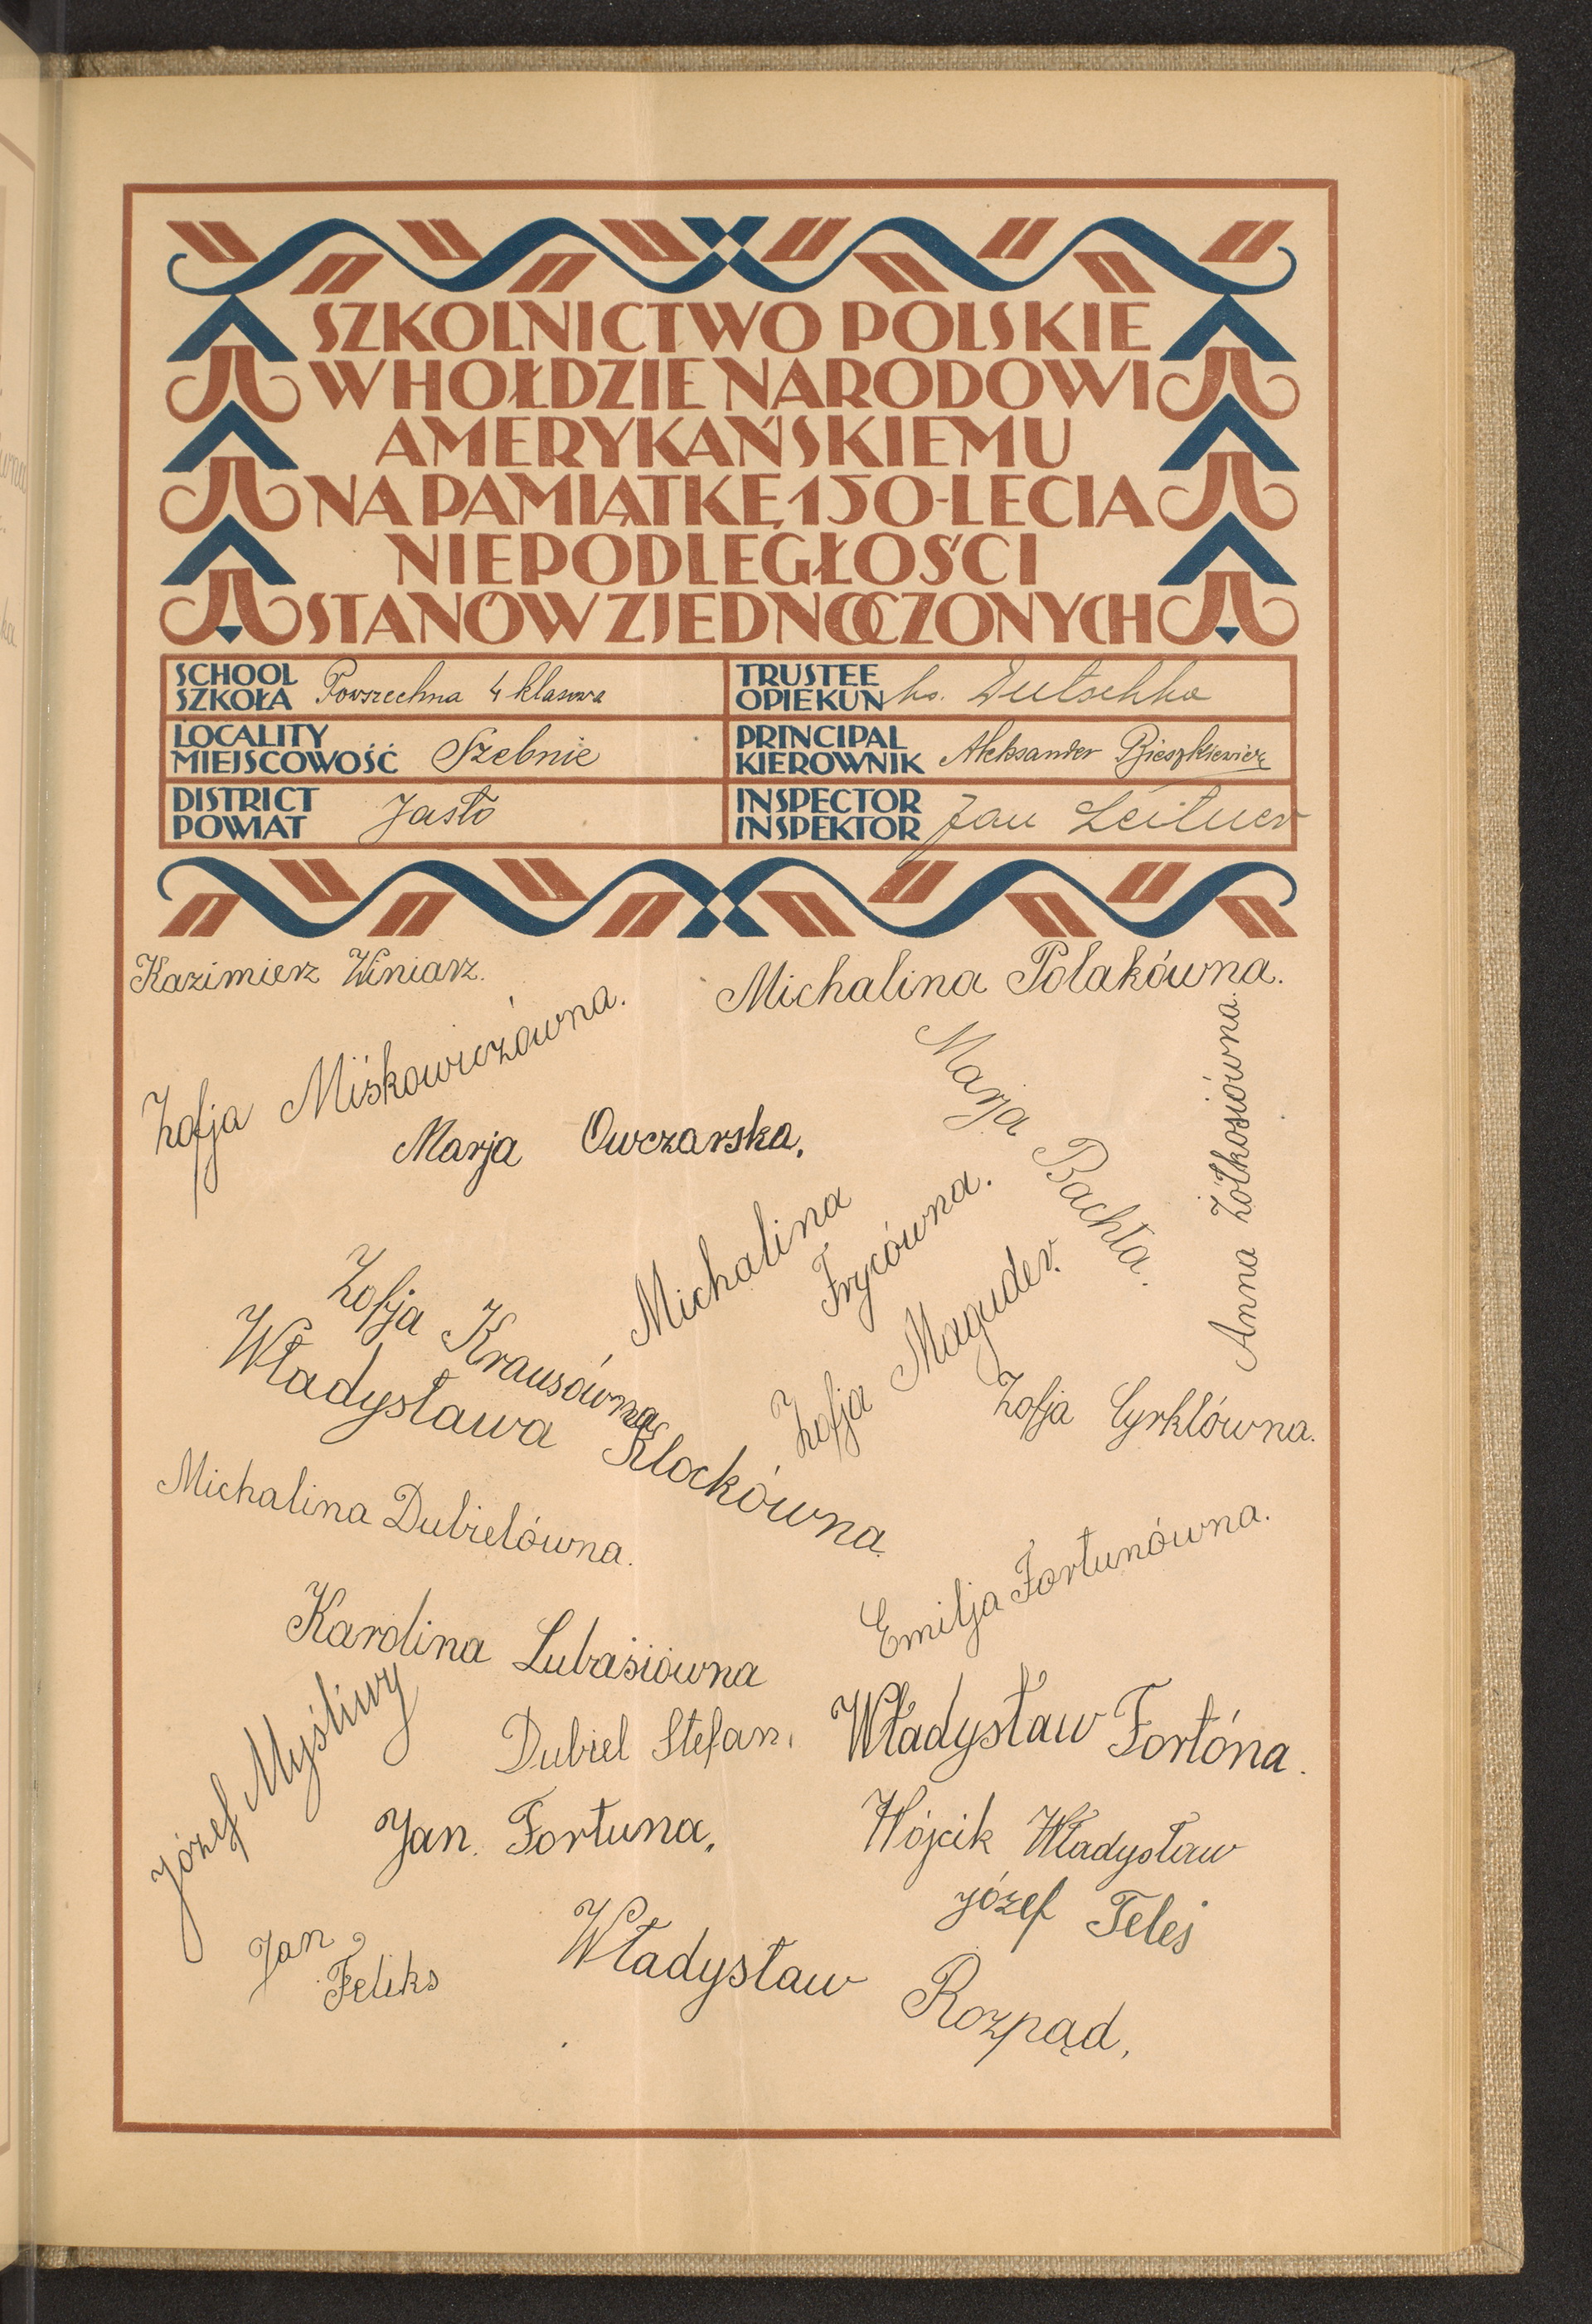 SZKOLNICTWO POLSKIE
W HOŁDZIE NARODOWI
AMERYKAŃSKIEMU
NA PAMIĄTKĘ 150-LECIA
NIEPODLEGŁOŚCI
STANÓW ZJEDNOCZONYCH
SCHOOL
SZKOŁA Powszechna 4 klasowa
TRUSTEE
OPIEKUN ks. Dutschka
LOCALITY
MIEJSCOWOŚĆ Szebnie
PRINCIPAL
KIEROWNIK Aleksander
DISTRICT
POWIAT Jasło
INSPECTOR
INSPEKTOR Jan Leitner
Kazimierz Winiarz.
Michalina Polakówna.
Zofja Miśkowiczówna.
Marja Owczarska.
Marja Bachta.
Anna Żółkosiówna.
Michalina
Frycówna.
Zofja Krausówna
Zofja Maguder.
Władysława Klockówna.
Zofja Cyrklówna.
Michalina Dubielówna.
Emilja Fortunówna.
Karolina Lubasiówna
Józef Myśliwy
Dubiel Stefan.
Władysław Fortóna.
Jan. Fortuna.
Wójcik Władysław
Józef Teleś
Jan
Feliks
Władysław Rozpąd.